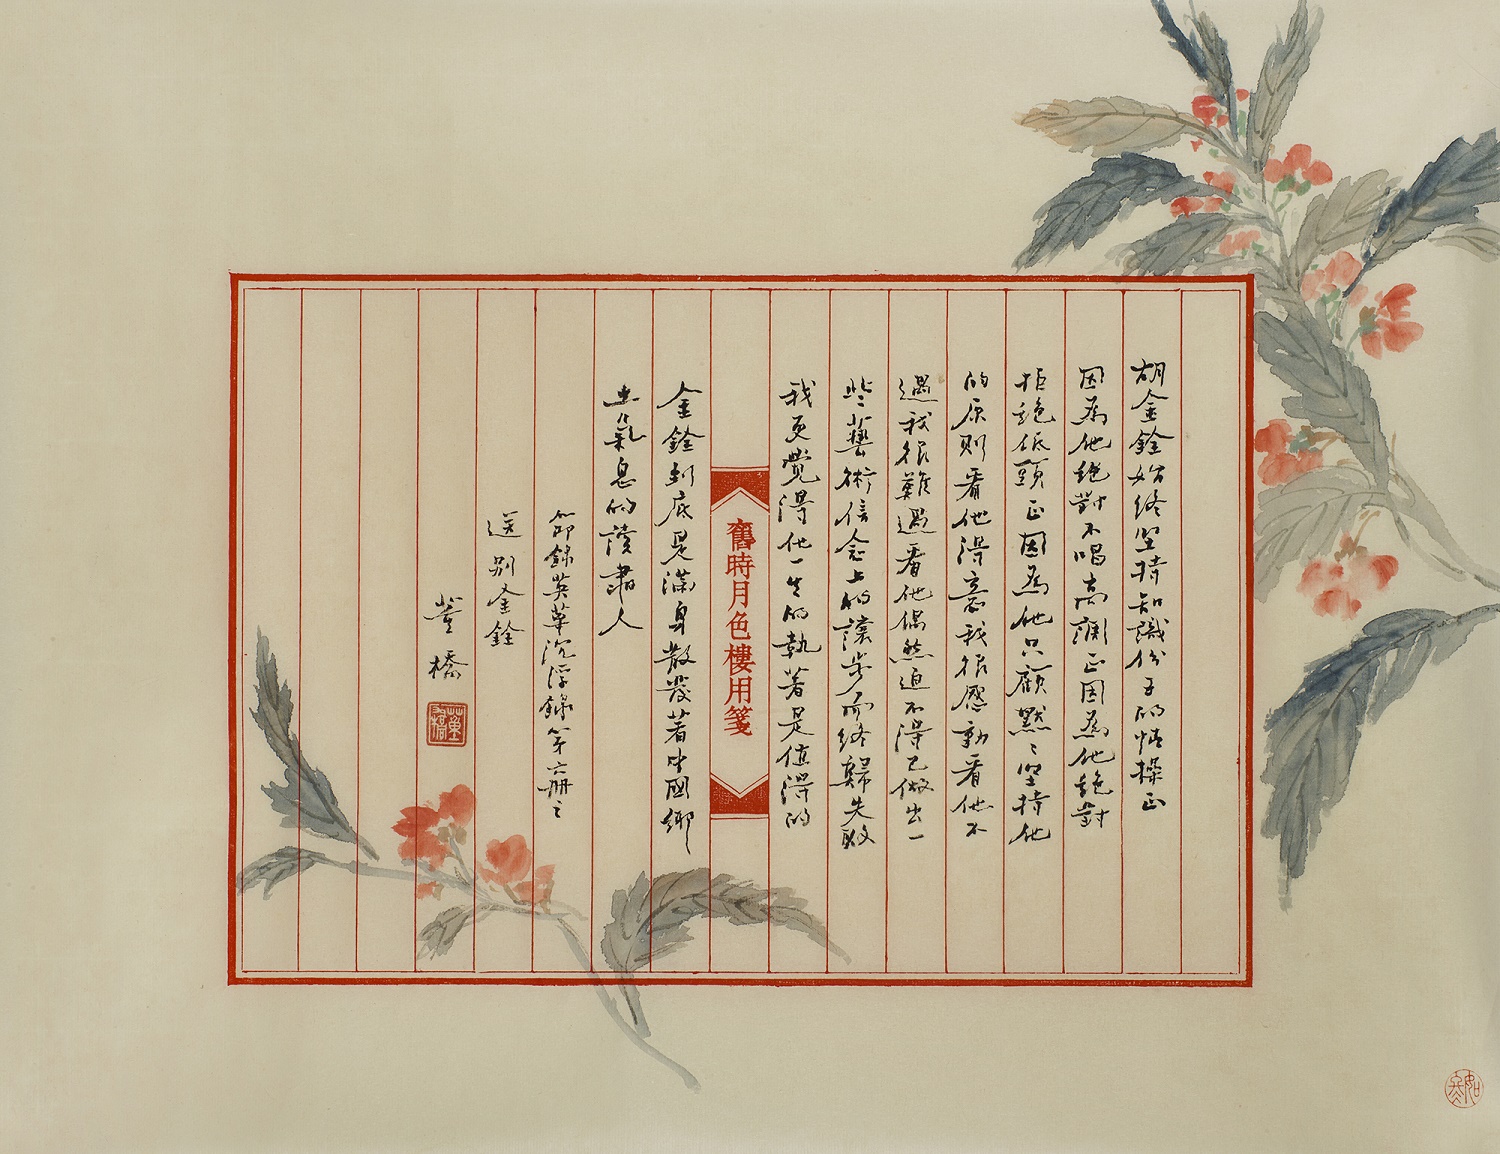 胡金銓始終堅持知識份子的情操正
因為他絕對不唱高調正因為他絕對
拒絕低頭正因為他只顧默〻堅持他
的原則看他得意我很感動看他不
遇我很難過看他偶然迫不得已做出一
些藝術信念上的讓步而終歸失敗
我更覺得他一生的執著是值得的
舊時月色樓用箋
金銓到底是滿身散發著中國鄉
土氣息的讀書人
節錄英華沉浮錄第六册之
送別金銓
董橋
董橋